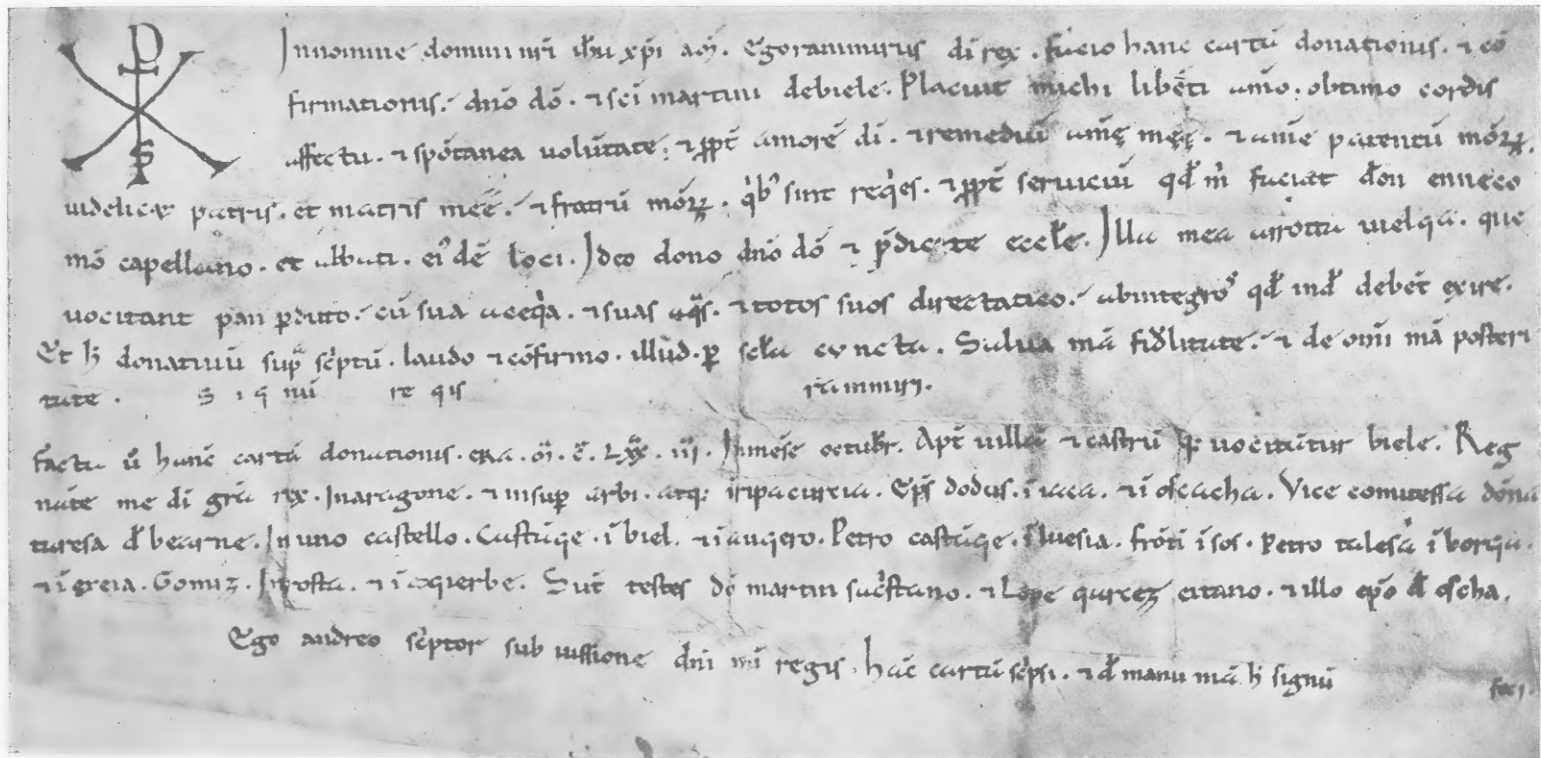 Innomine domini nr̄i ih̄u xp̄i am̄. Ego rammirus di rex. facio hanc cartā donationis. ⁊ cō
firmationis. dn̄o dō. ⁊ sc̄i martini debiele. Placuit michi libēti amo. obtimo cordis
affectu. ⁊ spōtanea volūtate. ⁊ ꝓpt̄ amorē di. ⁊ remediū am̄ę męę. ⁊ am̄e parentū mōꝝ.
videlicet patris. et matris meē. ⁊ fratrū mōꝝ. qⁱbꝰ sint reqⁱes. ⁊ ꝓpt̄ serviciū qd̄ m̄ faciat don enneco
mō capellano. et abbati. eiꝰdē loci. Ideo dono dn̄o dō ⁊ p̄dicte eccl̄e. Illa mea arrotta vielga. que
vocitant pan pduto. cū sua aceqⁱa. ⁊ suas aq̄s. ⁊ totos suos directatico. abintegro qd̄ ind̄ debēt exire.
Et h̄ donativū supᵃ scⁱptū. laudo ⁊ cōfirmo. illud. ꝑ scl̄a cuncta. Salva mā fidl̄itate. ⁊ de om̄i mā posteri
tate. S i g nū re gis rammiri.
facta ū hanc cartā donationis. era. m̄. c̄. Lxx̄. iij. Inmēse octubr̄. Apt̄ villā ⁊ castrū q̄ vocitatur biele. Reg
nāte me di grā rex. Inaragone. ⁊ insuꝑ arbi. atqꝫ iripacurcia. Ep̄s dodus. ī iaca. ⁊ ī oscacha. Vice comitessa dōna
taresa d̄ bearne. In uno castello. Castāge. ī biel. ⁊ ī augero. Petro castāge. ī luesia. frōti ī sos. Petro talesa ī borga.
⁊ ī ereia. Gomiz. Ī ay­erbe. Sūt testes dō martin sacⁱstano. ⁊ Lope garcez citano. ⁊ illo ep̄o d̄ oscha.
Ego andreo scⁱptor sub iussione dn̄i mī regis. hāc cartā scⁱpsi. ⁊ d̄ manu mā h̄ signū feci.